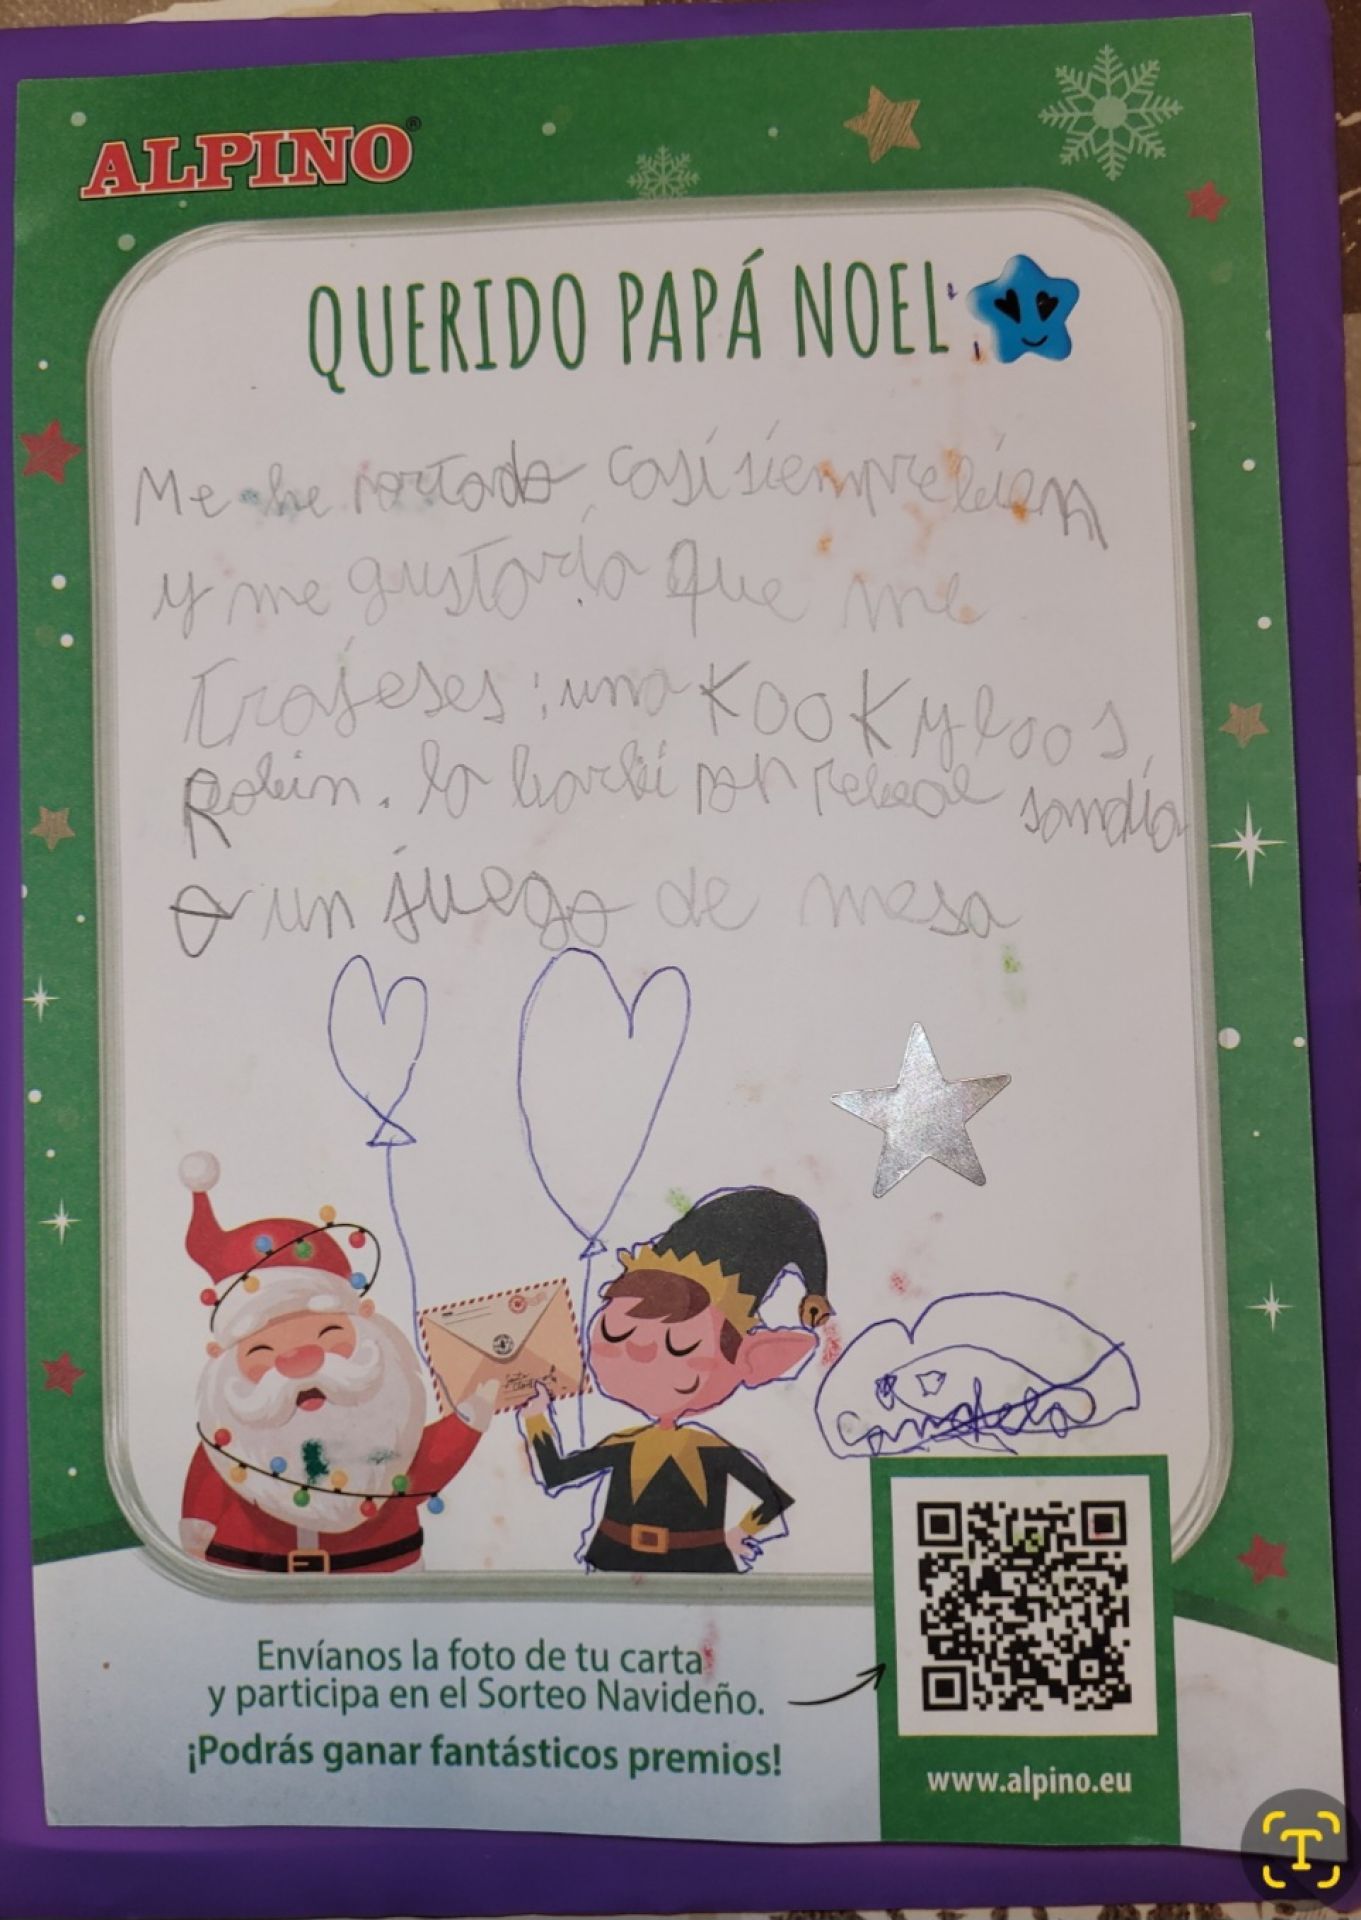 ALPINO®
QUERIDO PAPÁ NOEL:
Me he portado casi siempre bien
y me gustaría que me
trajeses: una KooKyloos
Robin. la barbi pop rebeal sandía
o un juego de mesa
Candela
Envíanos la foto de tu carta
y participa en el Sorteo Navideño.
¡Podrás ganar fantásticos premios!
www.alpino.eu